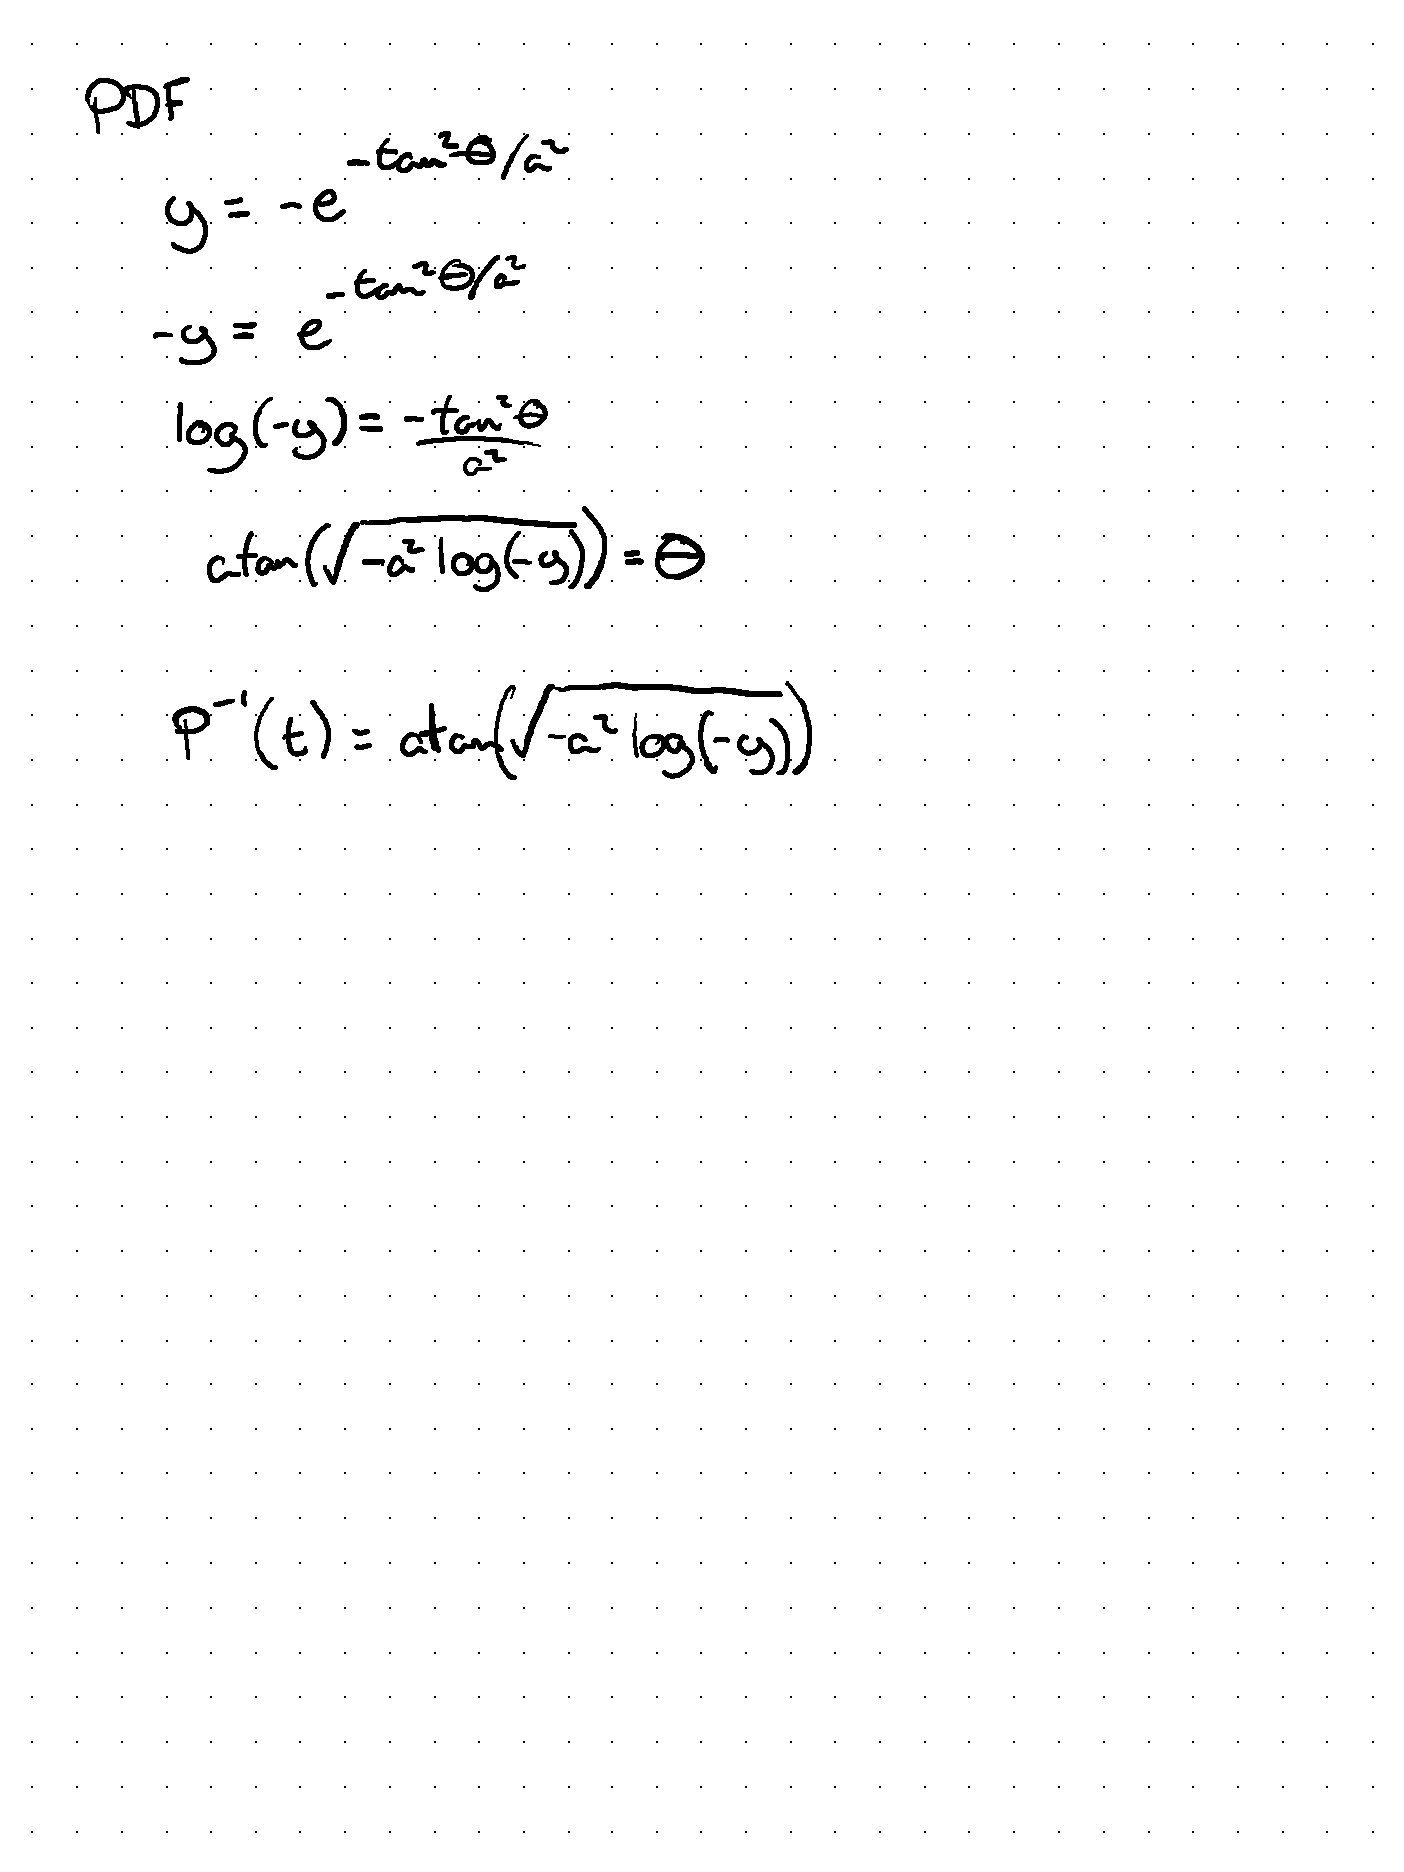 PDF
y = -e^{-tan²θ/a²}
-y = e^{-tan²θ/a²}
log(-y) = -tan²θ/a²
atan(√(-a² log(-y))) = θ
P⁻¹(t) = atan(√(-a² log(-y)))